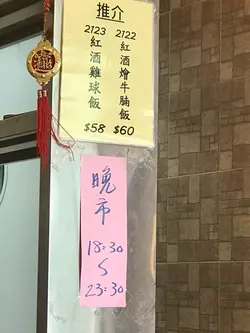 推介
2122
紅酒燴牛腩飯
$60
2123
紅酒雞球飯
$58
晚市
18:30
~
23:30